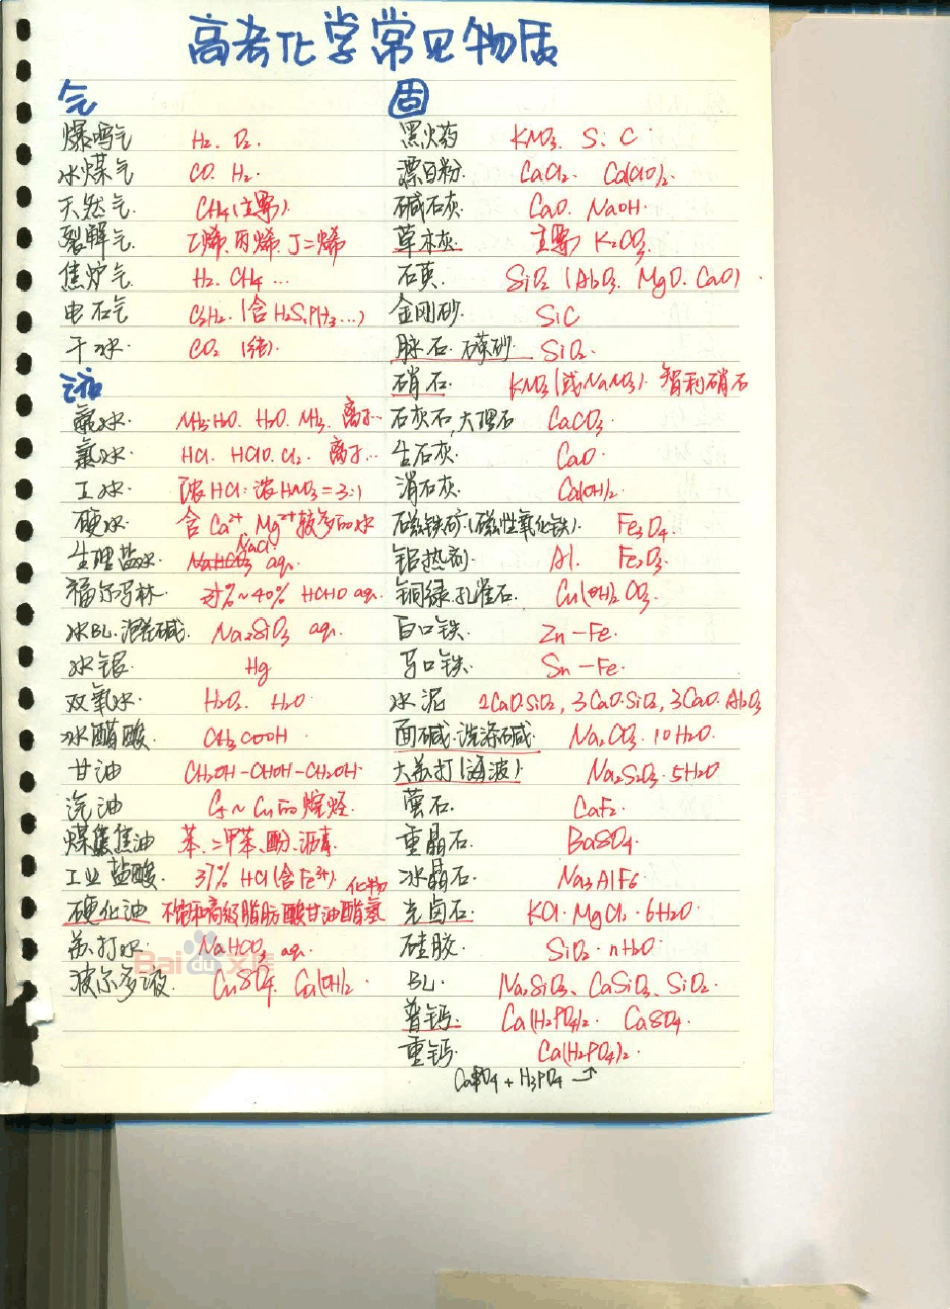 高考化学常见物质
气
爆鸣气 H₂. O₂.
水煤气 CO. H₂.
天然气. CH₄(主要).
裂解气. 乙烯. 丙烯. 丁二烯
焦炉气. H₂. CH₄ ...
电石气 C₂H₂. (含H₂S, PH₃...)
干冰. CO₂ (纯).
液
氨水. NH₃·H₂O. H₂O. NH₃. 离子..
氯水. HCl. HClO. Cl₂. 离子...
王水. 浓HCl:浓HNO₃=3:1
硬水. 含Ca²⁺. Mg²⁺较多的水
生理盐水. NaCl aq.
福尔马林 ~40% HCHO aq.
水BL. 泡花碱. Na₂SiO₃ aq.
水银. Hg
双氧水. H₂O₂. H₂O.
冰醋酸. CH₃COOH
甘油 CH₂OH-CHOH-CH₂OH.
汽油 C₅~C₁₁的烷烃.
煤焦油 苯、二甲苯、酚、沥青.
工业盐酸. 37% HCl(含Fe³⁺).
硬化油 不饱和高级脂肪酸甘油酯氢化物
苏打水. NaHCO₃ aq.
波尔多液. CuSO₄. Ca(OH)₂.
固
黑火药 KNO₃. S. C.
漂白粉. CaCl₂. Ca(ClO)₂.
碱石灰. CaO. NaOH.
草木灰. 主要 K₂CO₃.
石英. SiO₂ (Al₂O₃. MgO. CaO).
金刚砂. SiC
脉石. 石英砂. SiO₂.
硝石. KNO₃(或NaNO₃). 智利硝石
石灰石, 大理石 CaCO₃.
生石灰. CaO.
消石灰. Ca(OH)₂.
磁铁矿(磁性氧化铁). Fe₃O₄.
铝热剂. Al. Fe₂O₃.
铜绿. 孔雀石. Cu₂(OH)₂CO₃.
白口铁. Zn-Fe.
马口铁. Sn-Fe.
水泥 2CaO·SiO₂, 3CaO·SiO₂, 3CaO·Al₂O₃
面碱. 洗涤碱. Na₂CO₃·10H₂O.
大苏打(海波) Na₂S₂O₃·5H₂O
萤石. CaF₂.
重晶石. BaSO₄.
冰晶石. Na₃AlF₆.
光卤石. KCl·MgCl₂·6H₂O.
硅胶. SiO₂·nH₂O.
BL. Na₂SiO₃、CaSiO₃、SiO₂.
普钙. Ca(H₂PO₄)₂. CaSO₄.
重钙. Ca(H₂PO₄)₂.
+ H₃PO₄ →
Bai du 文库